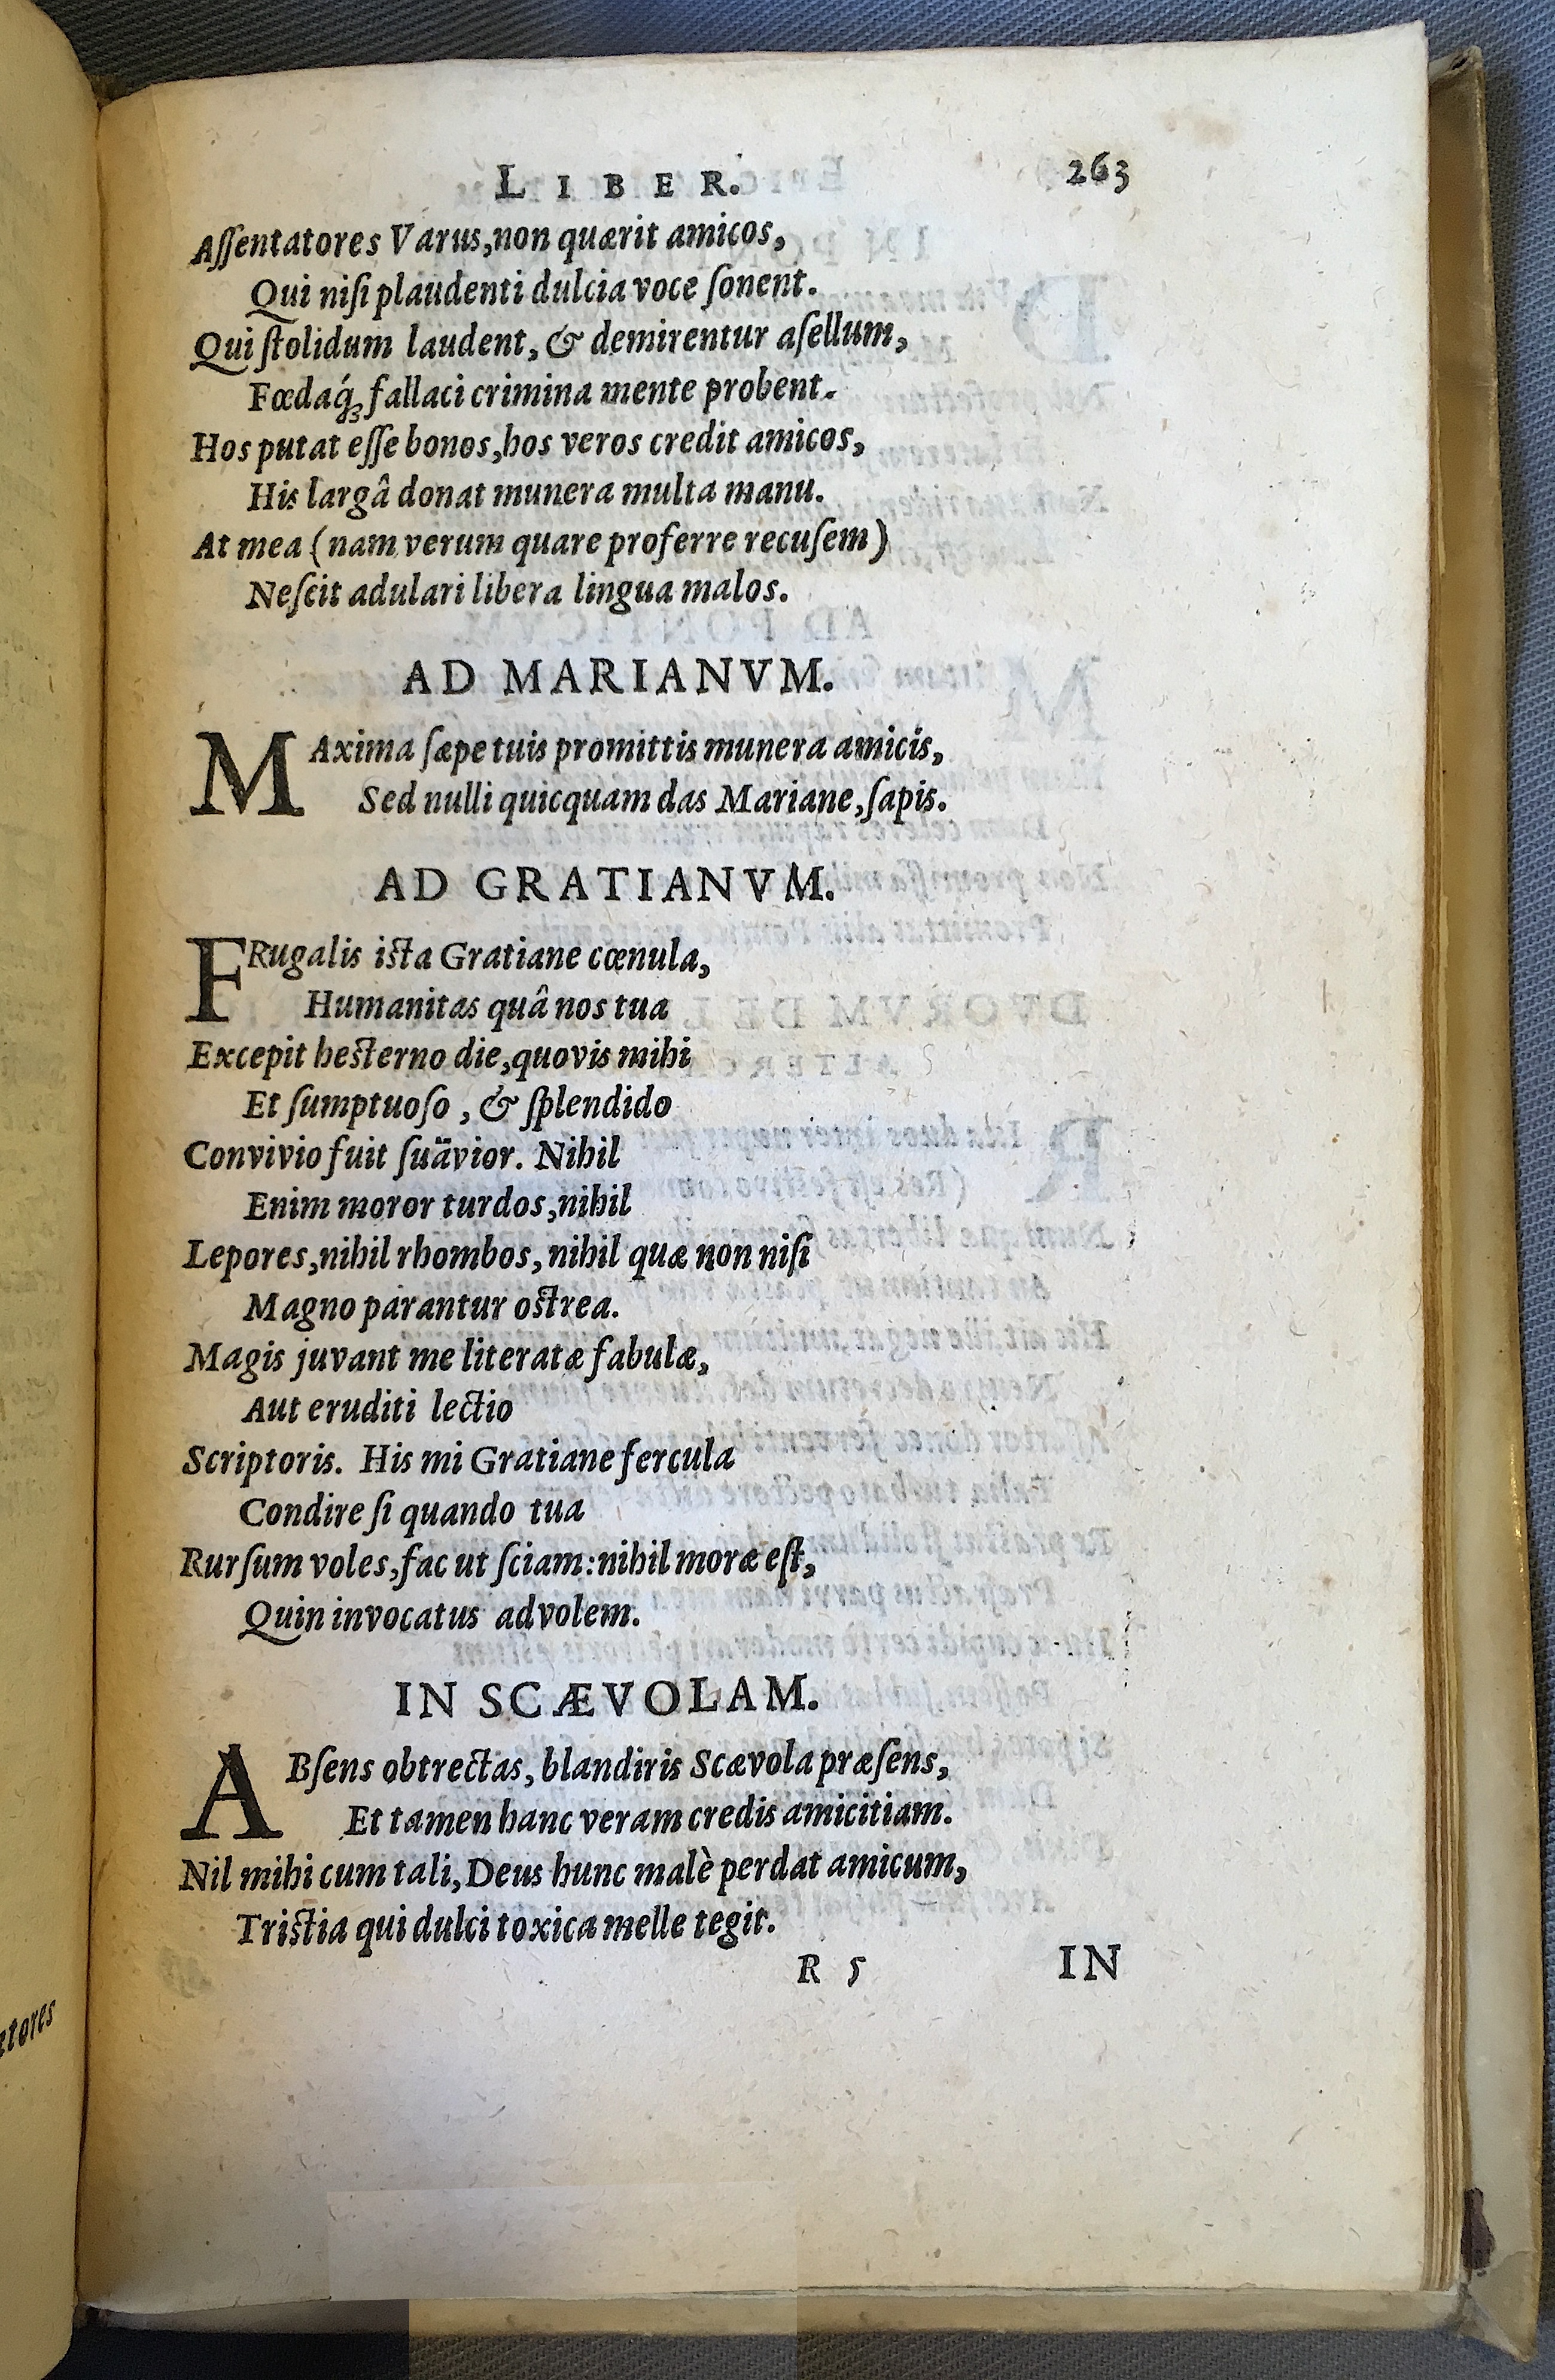 LIBER. 263
Aſſentatores Varus, non quærit amicos,
Qui niſi plaudenti dulcia voce ſonent.
Qui ſtolidum laudent, & demirentur aſellum,
Fœdaq́ꝫ fallaci crimina mente probent.
Hos putat eſſe bonos, hos veros credit amicos,
His largâ donat munera multa manu.
At mea (nam verum quare proferre recuſem)
Neſcit adulari libera lingua malos.
AD MARIANVM.
MAxima ſæpe tuis promittis munera amicis,
Sed nulli quicquam das Mariane, ſapis.
AD GRATIANVM.
FRugalis iſta Gratiane cœnula,
Humanitas quâ nos tua
Excepit heſterno die, quovis mihi
Et ſumptuoſo, & ſplendido
Convivio fuit ſuävior. Nihil
Enim moror turdos, nihil
Lepores, nihil rhombos, nihil quæ non niſi
Magno parantur oſtrea.
Magis juvant me literatæ fabulæ,
Aut eruditi lectio
Scriptoris. His mi Gratiane fercula
Condire ſi quando tua
Rurſum voles, fac ut ſciam: nihil moræ eſt,
Quin invocatus advolem.
IN SCÆVOLAM.
ABſens obtrectas, blandiris Scævola præſens,
Et tamen hanc veram credis amicitiam.
Nil mihi cum tali, Deus hunc malè perdat amicum,
Triſtia qui dulci toxica melle tegit.
R 5 IN